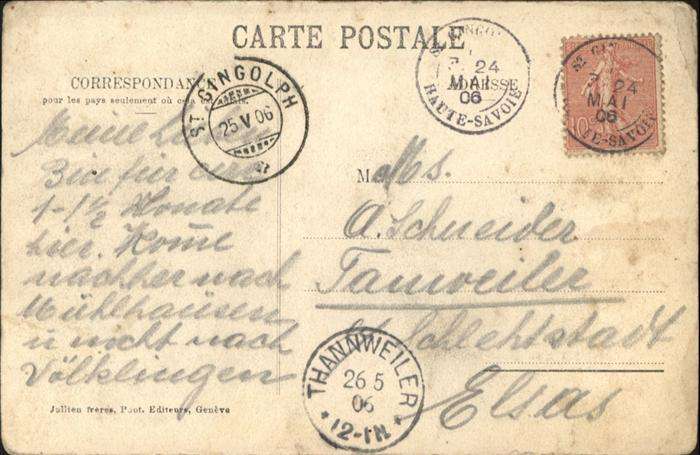 CARTE POSTALE
CORRESPONDANCE
pour les pays seulement où cela
ADRESSE
ST. GINGOLPH
25 V 06
ST GINGO
24
MAI
06
HAUTE-SAVOIE
ST GIN
24
MAI
06
TE-SAVOIE
10
Meine
Bin für
1-1½ Monate
hier. Kome
nachher nach
Mühlhausen
u nicht nach
Völklingen
M
Ms.
A. Schneider
Tanweiler
Schlehtstadt
Elsas
THANNWEILER
26 5
06
12-1N
Jullien frères, Phot. Editeurs, Genève